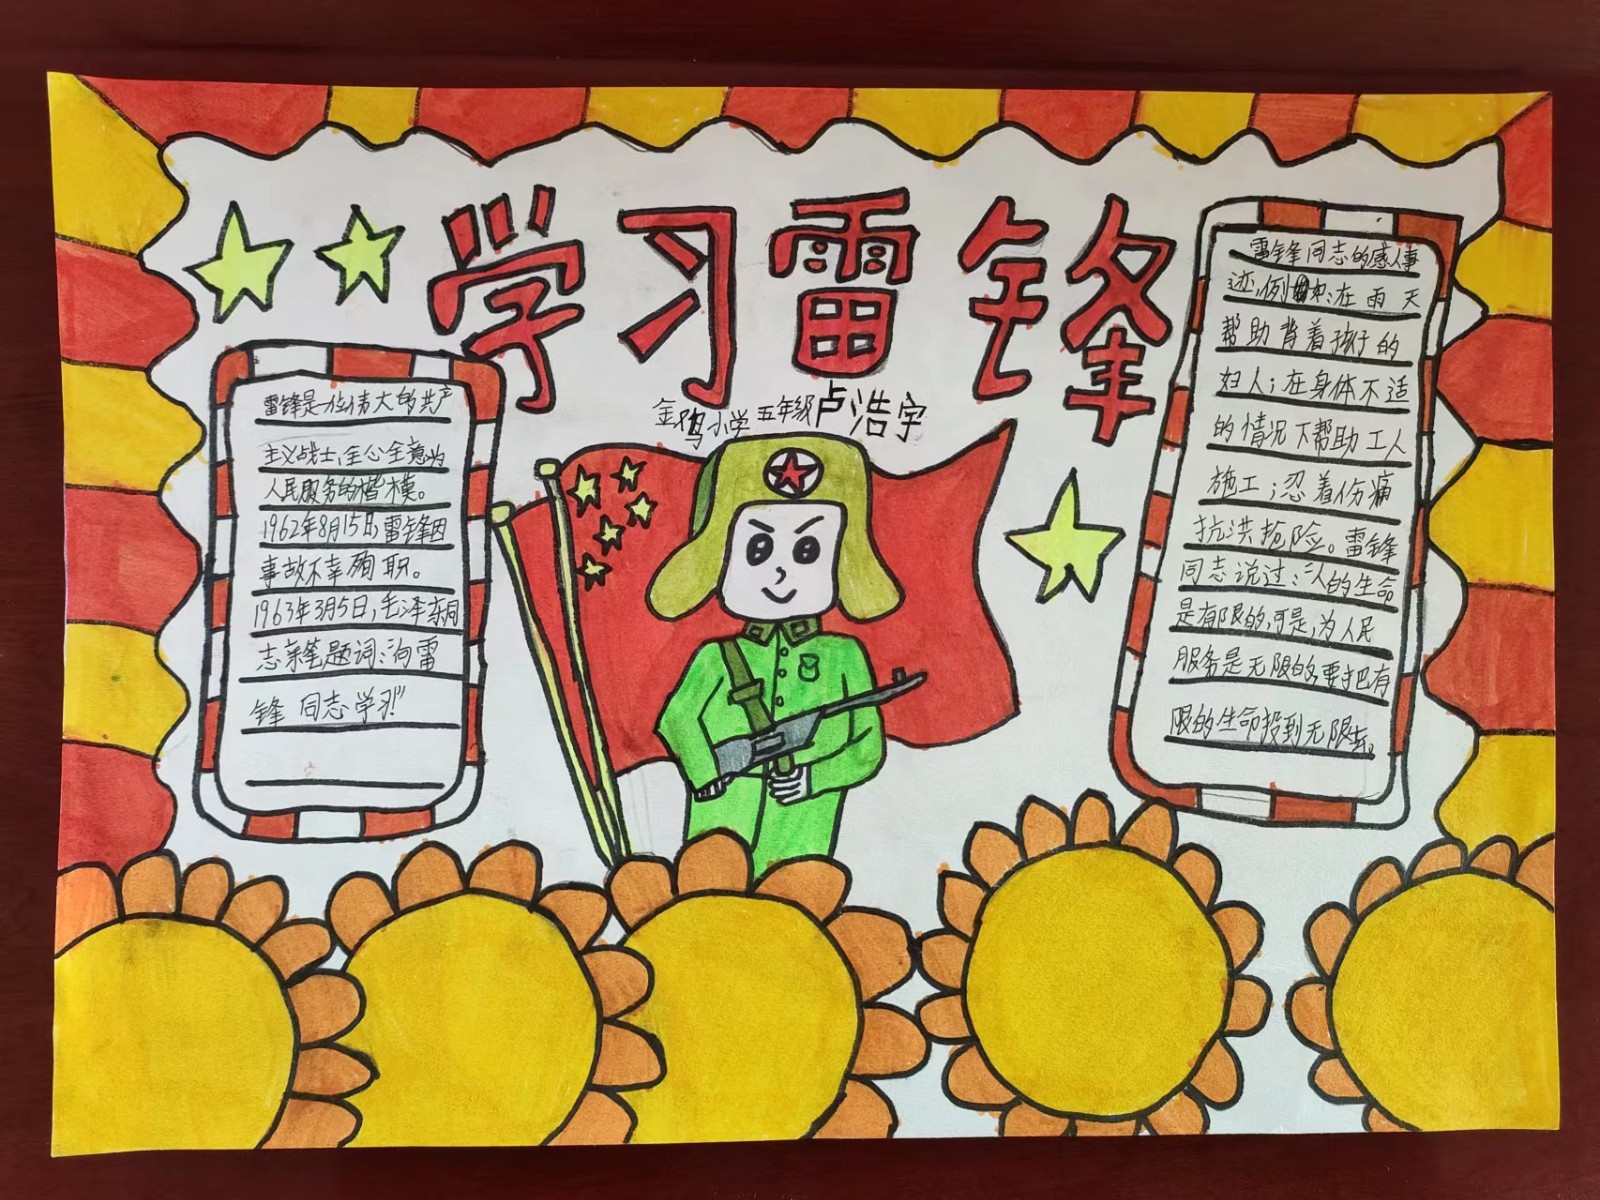 学习雷锋
金鸡小学五年级卢浩宇
雷锋是一位伟大的共产
主义战士,全心全意为
人民服务的楷模。
1962年8月15日雷锋因
事故不幸殉职。
1963年3月5日,毛泽东同
志亲笔题词:向雷
锋同志学习!
雷锋同志的感人事
迹,例如:在雨天
帮助背着孩子的
妇人;在身体不适
的情况下帮助工人
施工;忍着伤痛
抗洪抢险。雷锋
同志说过:人的生命
是有限的,可是,为人民
服务是无限的,要把有
限的生命投到无限去。